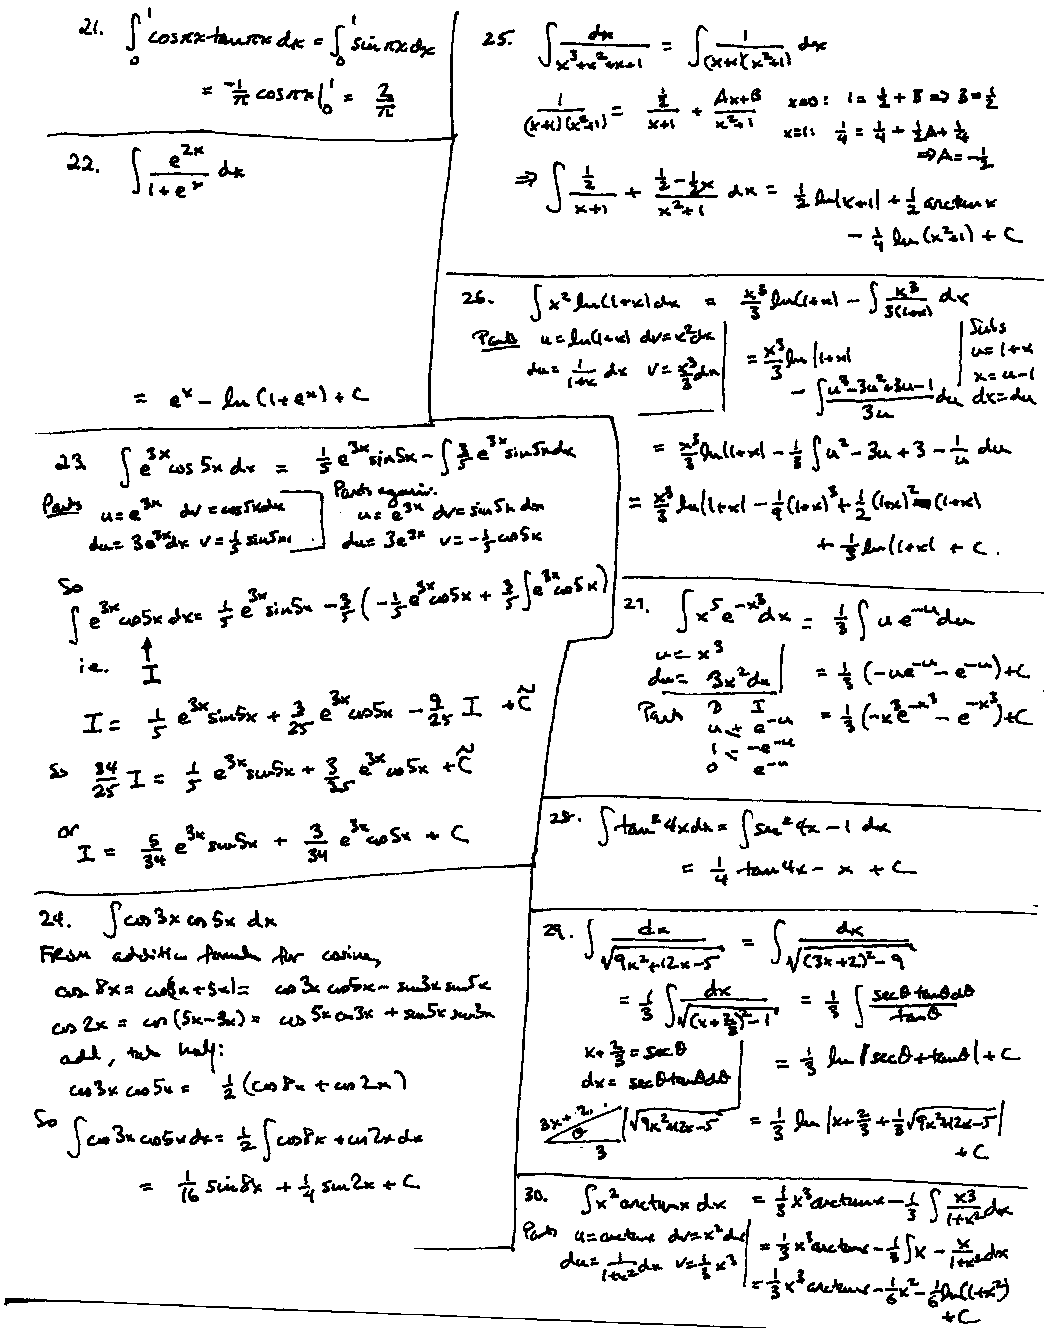 21. ∫₀¹ cosπx tanπx dx = ∫₀¹ sinπx dx
= -1/π cosπx |₀¹ = 2/π
22. ∫ e^{2x}/(1+e^x) dx
= e^x - ln(1+e^x) + C
23. ∫ e^{3x} cos 5x dx = 1/5 e^{3x} sin5x - ∫ 3/5 e^{3x} sin5x dx
Parts u = e^{3x} dv = cos5x dx
du = 3e^{3x}dx v = 1/5 sin5x
Parts again:
u = e^{3x} dv = sin5x dx
du = 3e^{3x} v = -1/5 cos5x
So
∫ e^{3x} cos5x dx = 1/5 e^{3x} sin5x - 3/5 (-1/5 e^{3x} cos5x + 3/5 ∫ e^{3x} cos5x)
i.e. I
I = 1/5 e^{3x} sin5x + 3/25 e^{3x} cos5x - 9/25 I + C̃
So 34/25 I = 1/5 e^{3x} sin5x + 3/25 e^{3x} cos5x + C̃
or
I = 5/34 e^{3x} sin5x + 3/34 e^{3x} cos5x + C
24. ∫ cos 3x cos 5x dx
From addition formula for cosine,
cos 8x = cos(3x+5x) = cos3x cos5x - sin3x sin5x
cos 2x = cos(5x-3x) = cos 5x cos 3x + sin5x sin3x
add, take half:
cos3x cos5x = 1/2 (cos8x + cos2x)
So
∫ cos3x cos5x dx = 1/2 ∫ cos8x + cos2x dx
= 1/16 sin8x + 1/4 sin2x + C
25. ∫ dx/(x³+x²+x+1) = ∫ 1/((x+1)(x²+1)) dx
1/((x+1)(x²+1)) = (1/2)/(x+1) + (Ax+B)/(x²+1) x=0: 1 = 1/2 + B ⇒ B = 1/2
x=1: 1/4 = 1/4 + 1/2 A + 1/4
⇒ A = -1/2
⇒ ∫ (1/2)/(x+1) + (1/2 - 1/2 x)/(x²+1) dx = 1/2 ln|x+1| + 1/2 arctan x
- 1/4 ln(x²+1) + C
26. ∫ x² ln(1+x) dx = x³/3 ln(1+x) - ∫ x³/(3(1+x)) dx
Parts u = ln(1+x) dv = x²dx
du = 1/(1+x) dx v = x³/3 dx
= x³/3 ln|1+x|
- ∫ (u³-3u²+3u-1)/(3u) du
Subs
u = 1+x
x = u-1
dx = du
= x³/3 ln|1+x| - 1/3 ∫ u² - 3u + 3 - 1/u du
= x³/3 ln|1+x| - 1/9 (1+x)³ + 1/2 (1+x)² - (1+x)
+ 1/3 ln|1+x| + C.
27. ∫ x⁵ e^{-x³} dx = 1/3 ∫ u e^{-u} du
u = x³
du = 3x²dx
= 1/3 (-ue^{-u} - e^{-u}) + C
Parts D I
u + e^{-u}
1 - -e^{-u}
0 e^{-u}
= 1/3 (-x³e^{-x³} - e^{-x³}) + C
28. ∫ tan² 4x dx = ∫ sec² 4x - 1 dx
= 1/4 tan 4x - x + C
29. ∫ dx/√(9x²+12x-5) = ∫ dx/√((3x+2)²-9)
= 1/3 ∫ dx/√((x+2/3)²-1) = 1/3 ∫ secθ tanθ dθ/tanθ
x+2/3 = secθ
dx = secθ tanθ dθ
= 1/3 ln|secθ + tanθ| + C
3x+2 θ 3 √(9x²+12x-5)
= 1/3 ln|x + 2/3 + 1/3 √(9x²+12x-5)|
+ C
30. ∫ x² arctan x dx = 1/3 x³ arctan x - 1/3 ∫ x3/(1+x²) dx
Parts u = arctanx dv = x²dx
du = 1/(1+x²) dx v = 1/3 x³
= 1/3 x³ arctanx - 1/3 ∫ x - x/(1+x²) dx
= 1/3 x³ arctanx - 1/6 x² - 1/6 ln(1+x²)
+ C